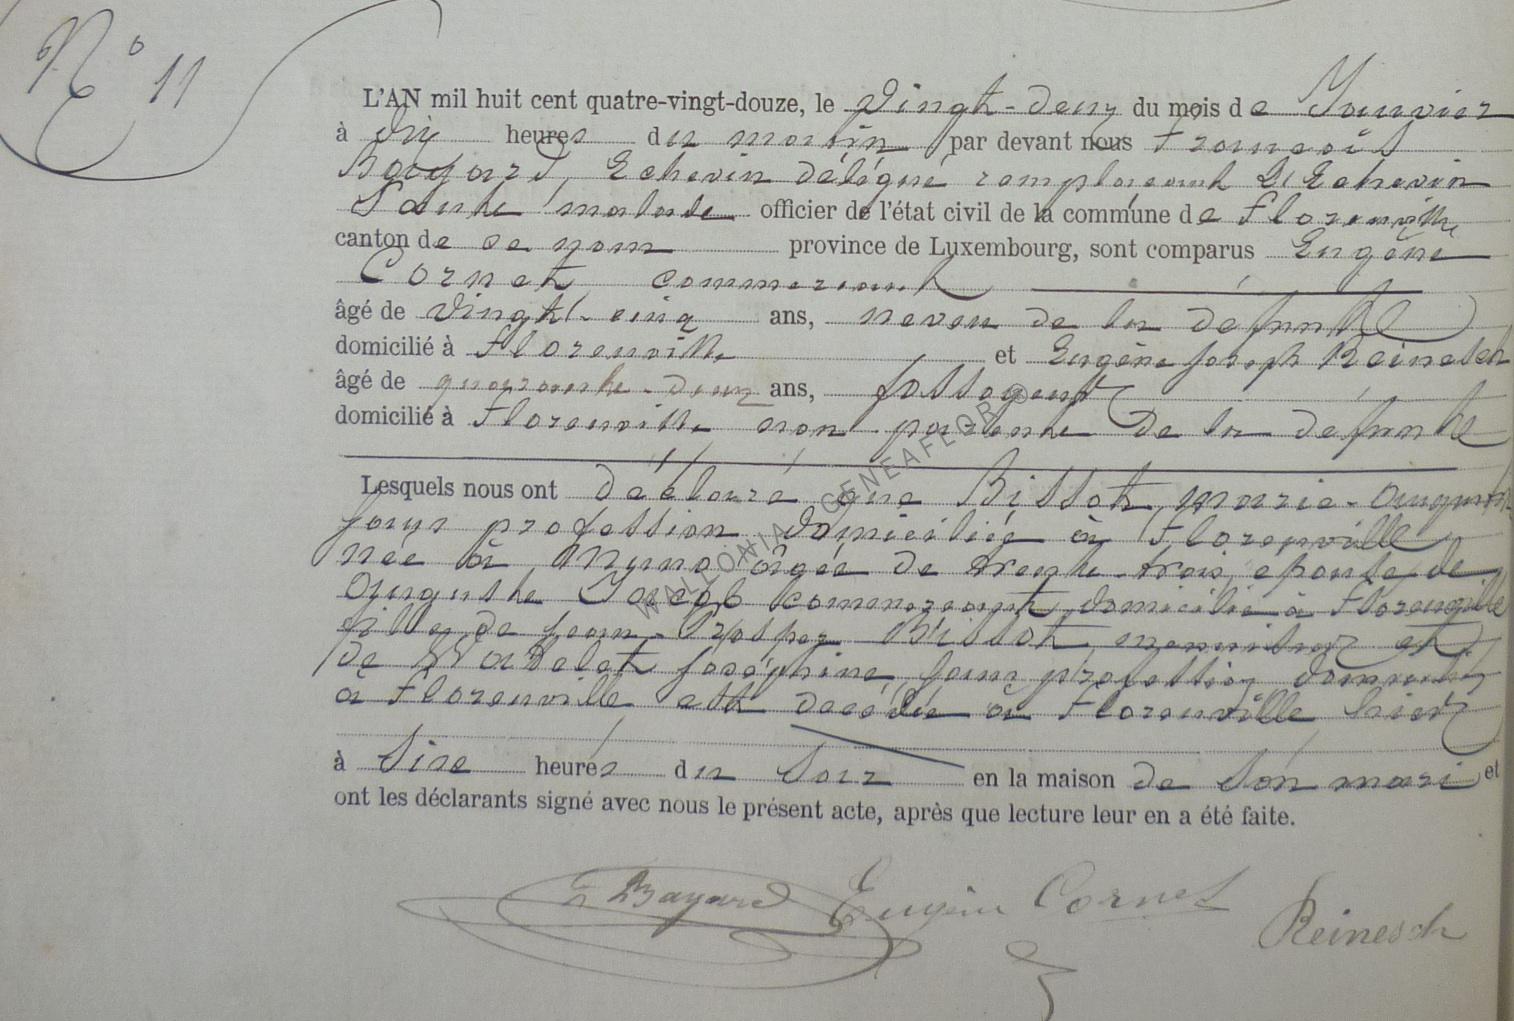 N° 11
L'AN mil huit cent quatre-vingt-douze, le vingt-deux du mois de Janvier
à dix heures du matin par devant nous François
Bayard, Echevin délégué remplacant L'Echevin
malade officier de l'état civil de la commune de Florenville
canton de ce nom province de Luxembourg, sont comparus Eugène
Cornet commercant
âgé de vingt-cinq ans, neveu de la défunte
domicilié à Florenville et Eugène Joseph Reinesch
âgé de quarante-deux ans, fossoyeur
domicilié à Florenville non parente de la défunte
Lesquels nous ont déclaré que Bissot, Marie-
sans profession domiciliée à Florenville
née à Muno âgée de trente-trois, epouse de
Auguste Jacob commercant domicilié à Florenville
fille de Jean-Prosper Bissot, menuisier et
de Joséphine, sans profession
à Florenville est decédée à Florenville hier
à Sixe heures du soir en la maison de son mari et
ont les déclarants signé avec nous le présent acte, après que lecture leur en a été faite.
Bayard Eugène Cornet Reinesch
WALLONIA GENEAFLOR ©